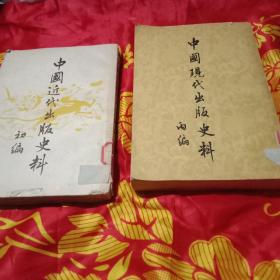 中國近代出版史料
初編
中國現代出版史料
丙編